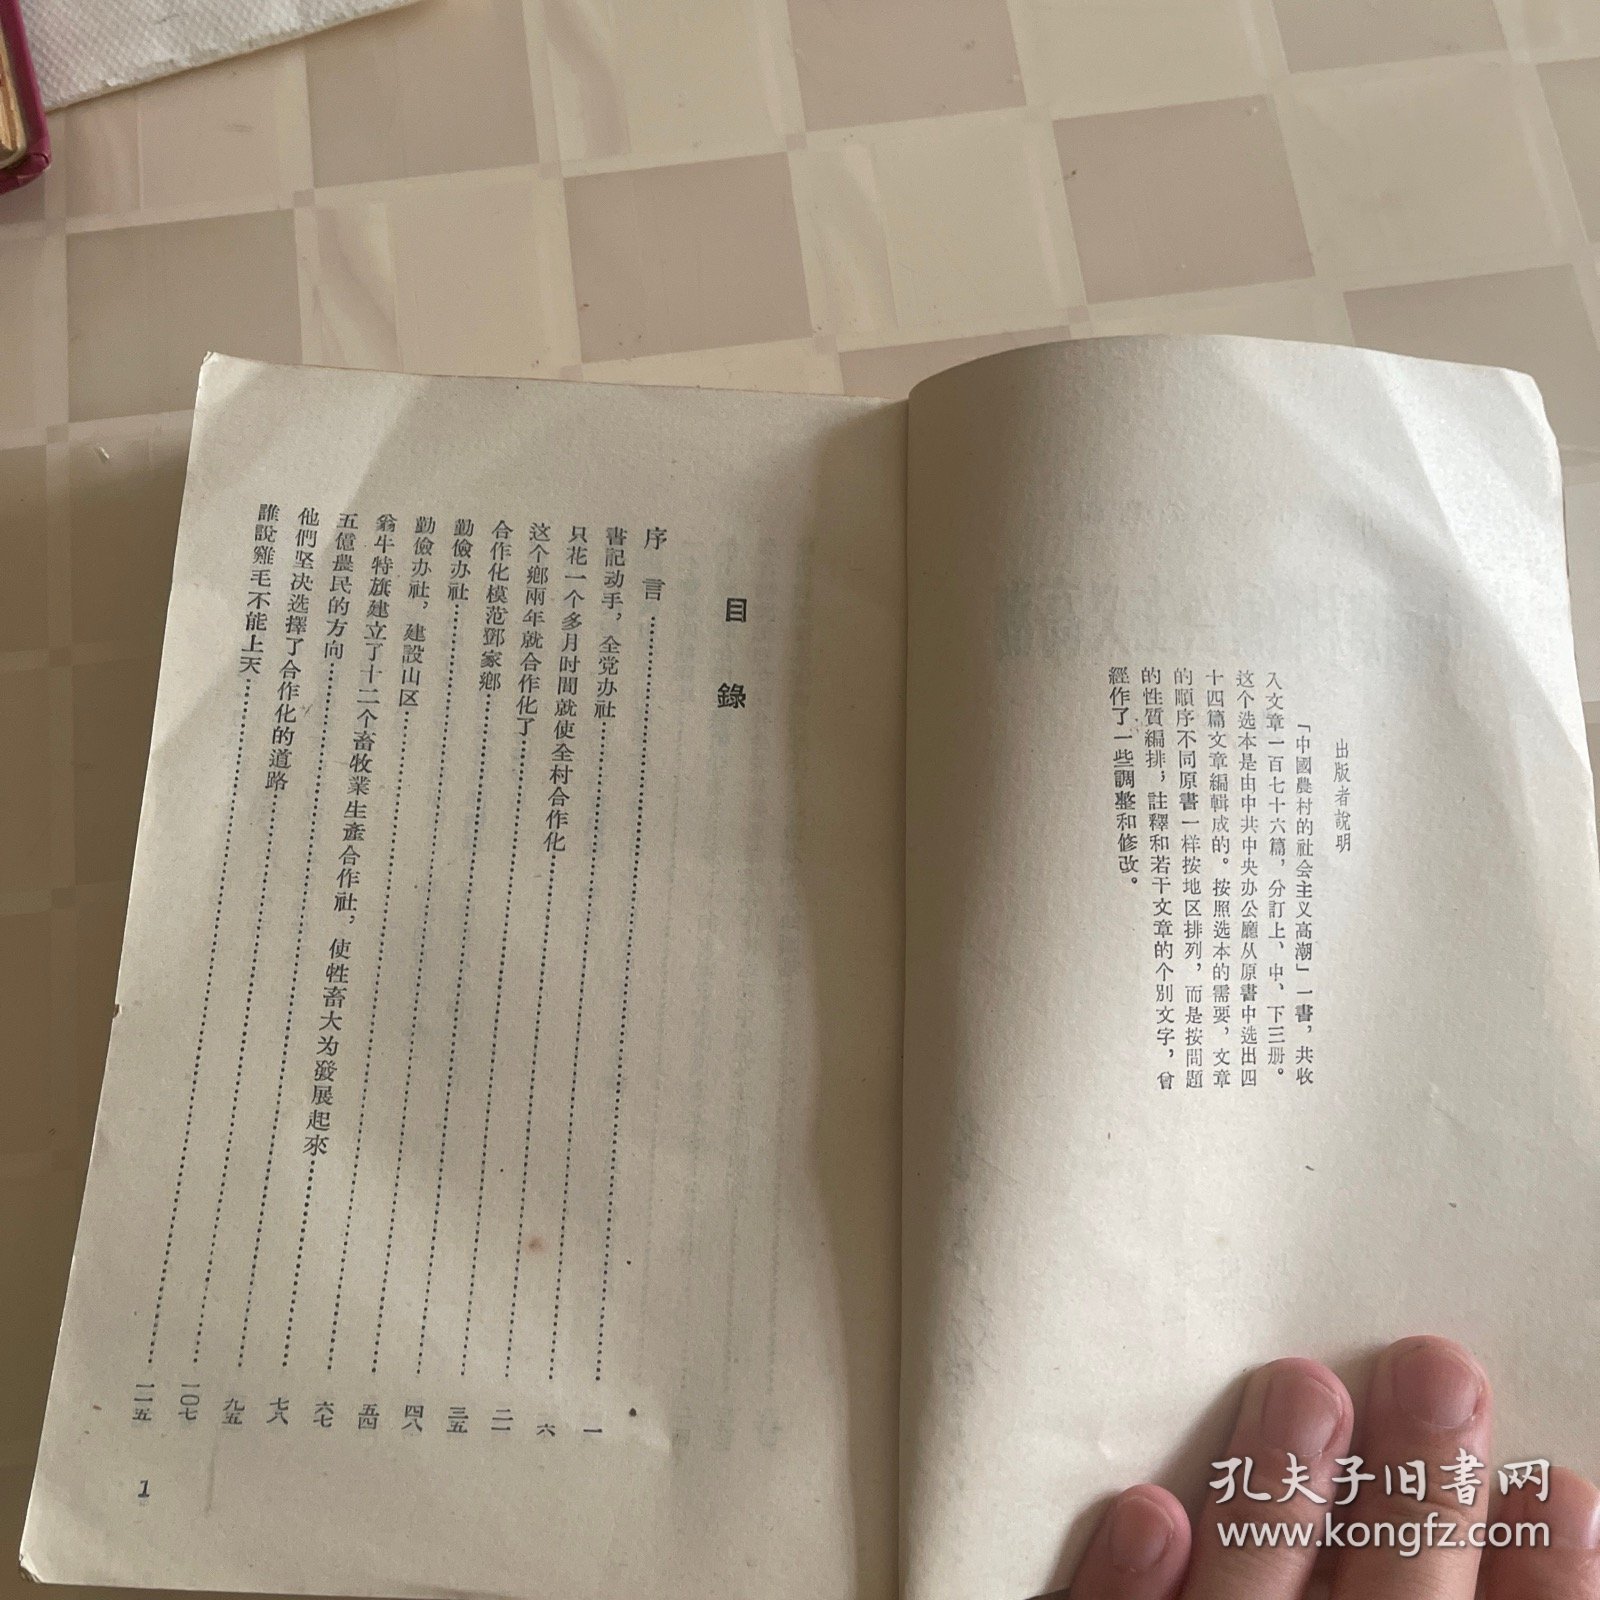 出版者說明
「中國農村的社会主义高潮」一書，共收
入文章一百七十六篇，分訂上、中、下三册。
这个选本是由中共中央办公廳从原書中选出四
十四篇文章編輯成的。按照选本的需要，文章
的順序不同原書一样按地区排列，而是按問題
的性質編排；註釋和若干文章的个別文字，曾
經作了一些調整和修改。
目錄
序言…………一
書記动手，全党办社…………六
只花一个多月时間就使全村合作化…………二一
这个鄉兩年就合作化了…………三五
合作化模范鄧家鄉…………四八
勤儉办社…………五四
勤儉办社，建設山区…………六七
翁牛特旗建立了十二个畜牧業生產合作社，使牲畜大为發展起來…………七八
五億農民的方向…………九五
他們坚决选擇了合作化的道路…………一〇七
誰說雞毛不能上天…………一一五
1
孔夫子旧書网
www.kongfz.com